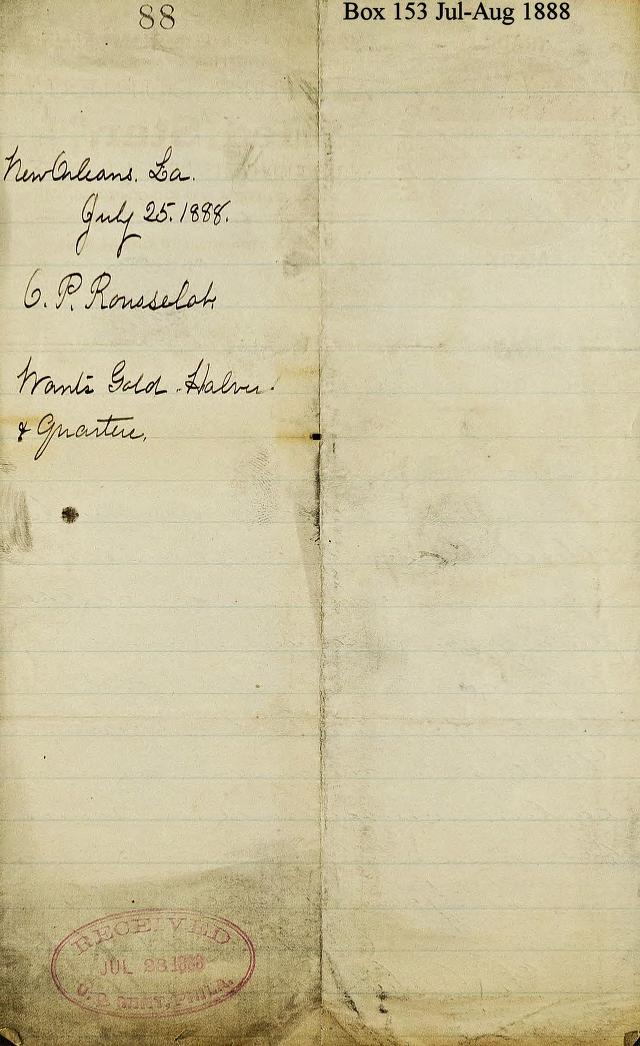 88
Box 153 Jul-Aug 1888
New Orleans. La.
July 25. 1888.
C. P. Rousselot
Wants Gold Halves
& Quarters.
RECEIVED
JUL 28 1888
U.S. MINT, PHILA.